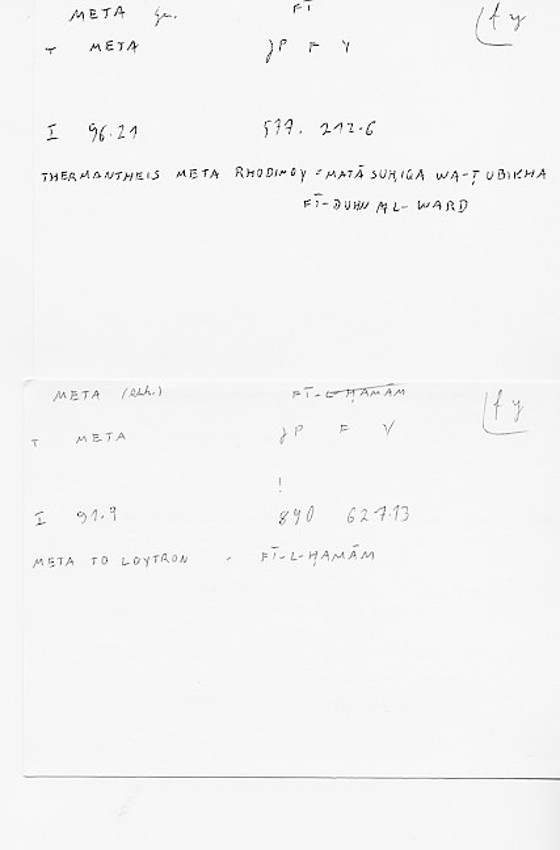 META gen. FĪ fy
T META JP F Y
I 96.21 577. 212.6
THERMANTHEIS META RHODINOY = MATĀ SUḤIGA WA-ṬUBIKHA
FĪ-DUHN AL-WARD
META FĪ-L-ḤAMĀM fy
T META JP F V
!
I 91.9 890 627.13
META TO LOYTRON - FĪ-L-ḤAMĀM